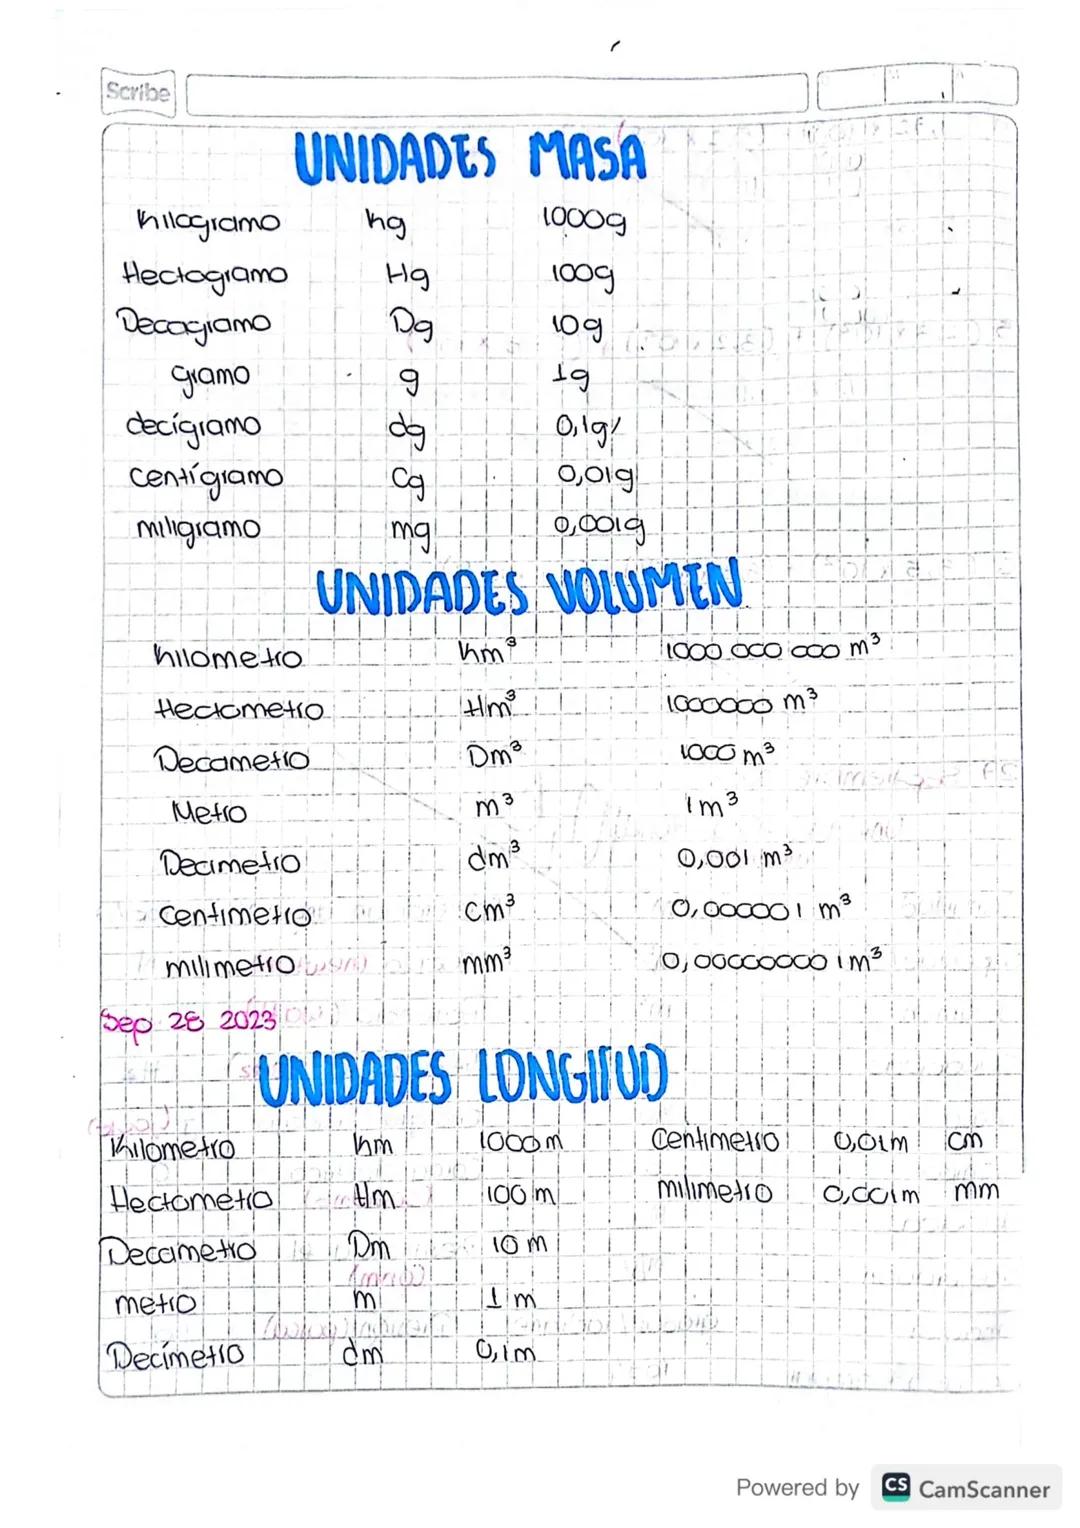 Scribe
UNIDADES MASA
Kilogramo kg 1000g
Hectogramo Hg 100g
Decagramo Dg 10g
gramo g 1g
decígramo dg 0,1g
Centígramo Cg 0,01g
miligramo mg 0,001g
UNIDADES VOLUMEN
kilometro km³ 1000 000 000 m³
Hectometro Hm³ 1000000 m³
Decametro Dm³ 1000 m³
Metro m³ 1m³
Decimetro dm³ 0,001 m³
Centimetro cm³ 0,000001 m³
milimetro mm³ 0,000000001m³
Sep 28 2023
UNIDADES LONGITUD
Kilometro km 1000m Centimetro 0,01m cm
Hectometro Hm 100m milimetro 0,001m mm
Decametro Dm 10m
metro m 1m
Decímetro dm 0,1m
Powered by CS CamScanner